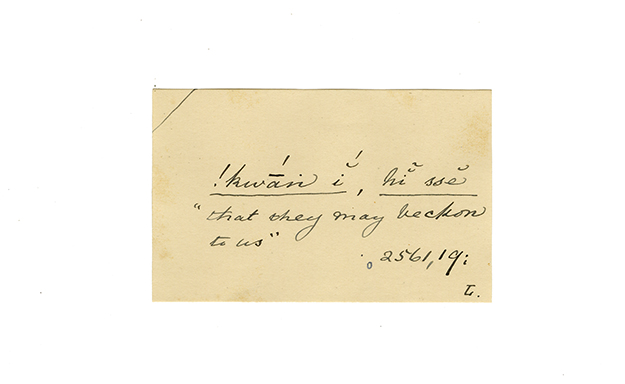 !kwā́n ĭ́, hĭ ssĕ
"that they may beckon
to us"
2561,19;
L.